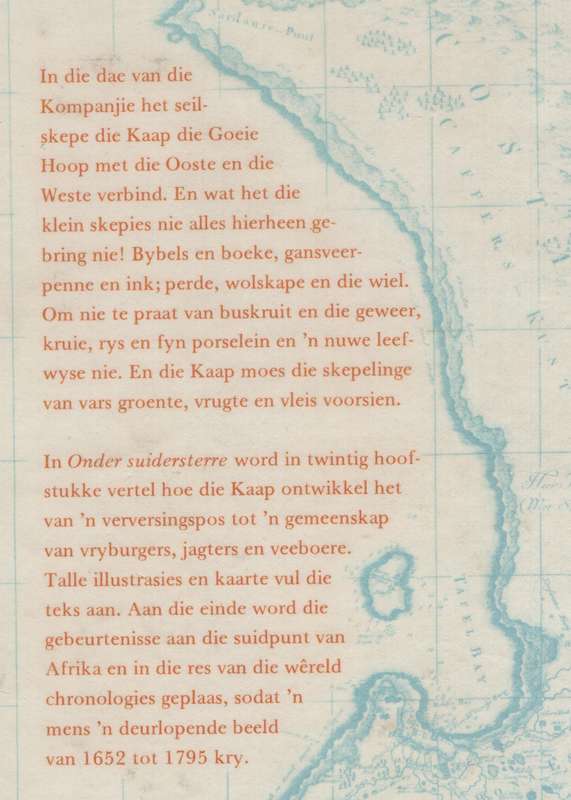 Tafel Bay
In die dae van die
Kompanjie het seil-
skepe die Kaap die Goeie
Hoop met die Ooste en die
Weste verbind. En wat het die
klein skepies nie alles hierheen ge-
bring nie! Bybels en boeke, gansveer-
penne en ink; perde, wolskape en die wiel.
Om nie te praat van buskruit en die geweer,
kruie, rys en fyn porselein en 'n nuwe leef-
wyse nie. En die Kaap moes die skepelinge
van vars groente, vrugte en vleis voorsien.
In Onder suidersterre word in twintig hoof-
stukke vertel hoe die Kaap ontwikkel het
van 'n verversingspos tot 'n gemeenskap
van vryburgers, jagters en veeboere.
Talle illustrasies en kaarte vul die
teks aan. Aan die einde word die
gebeurtenisse aan die suidpunt van
Afrika en in die res van die wêreld
chronologies geplaas, sodat 'n
mens 'n deurlopende beeld
van 1652 tot 1795 kry.